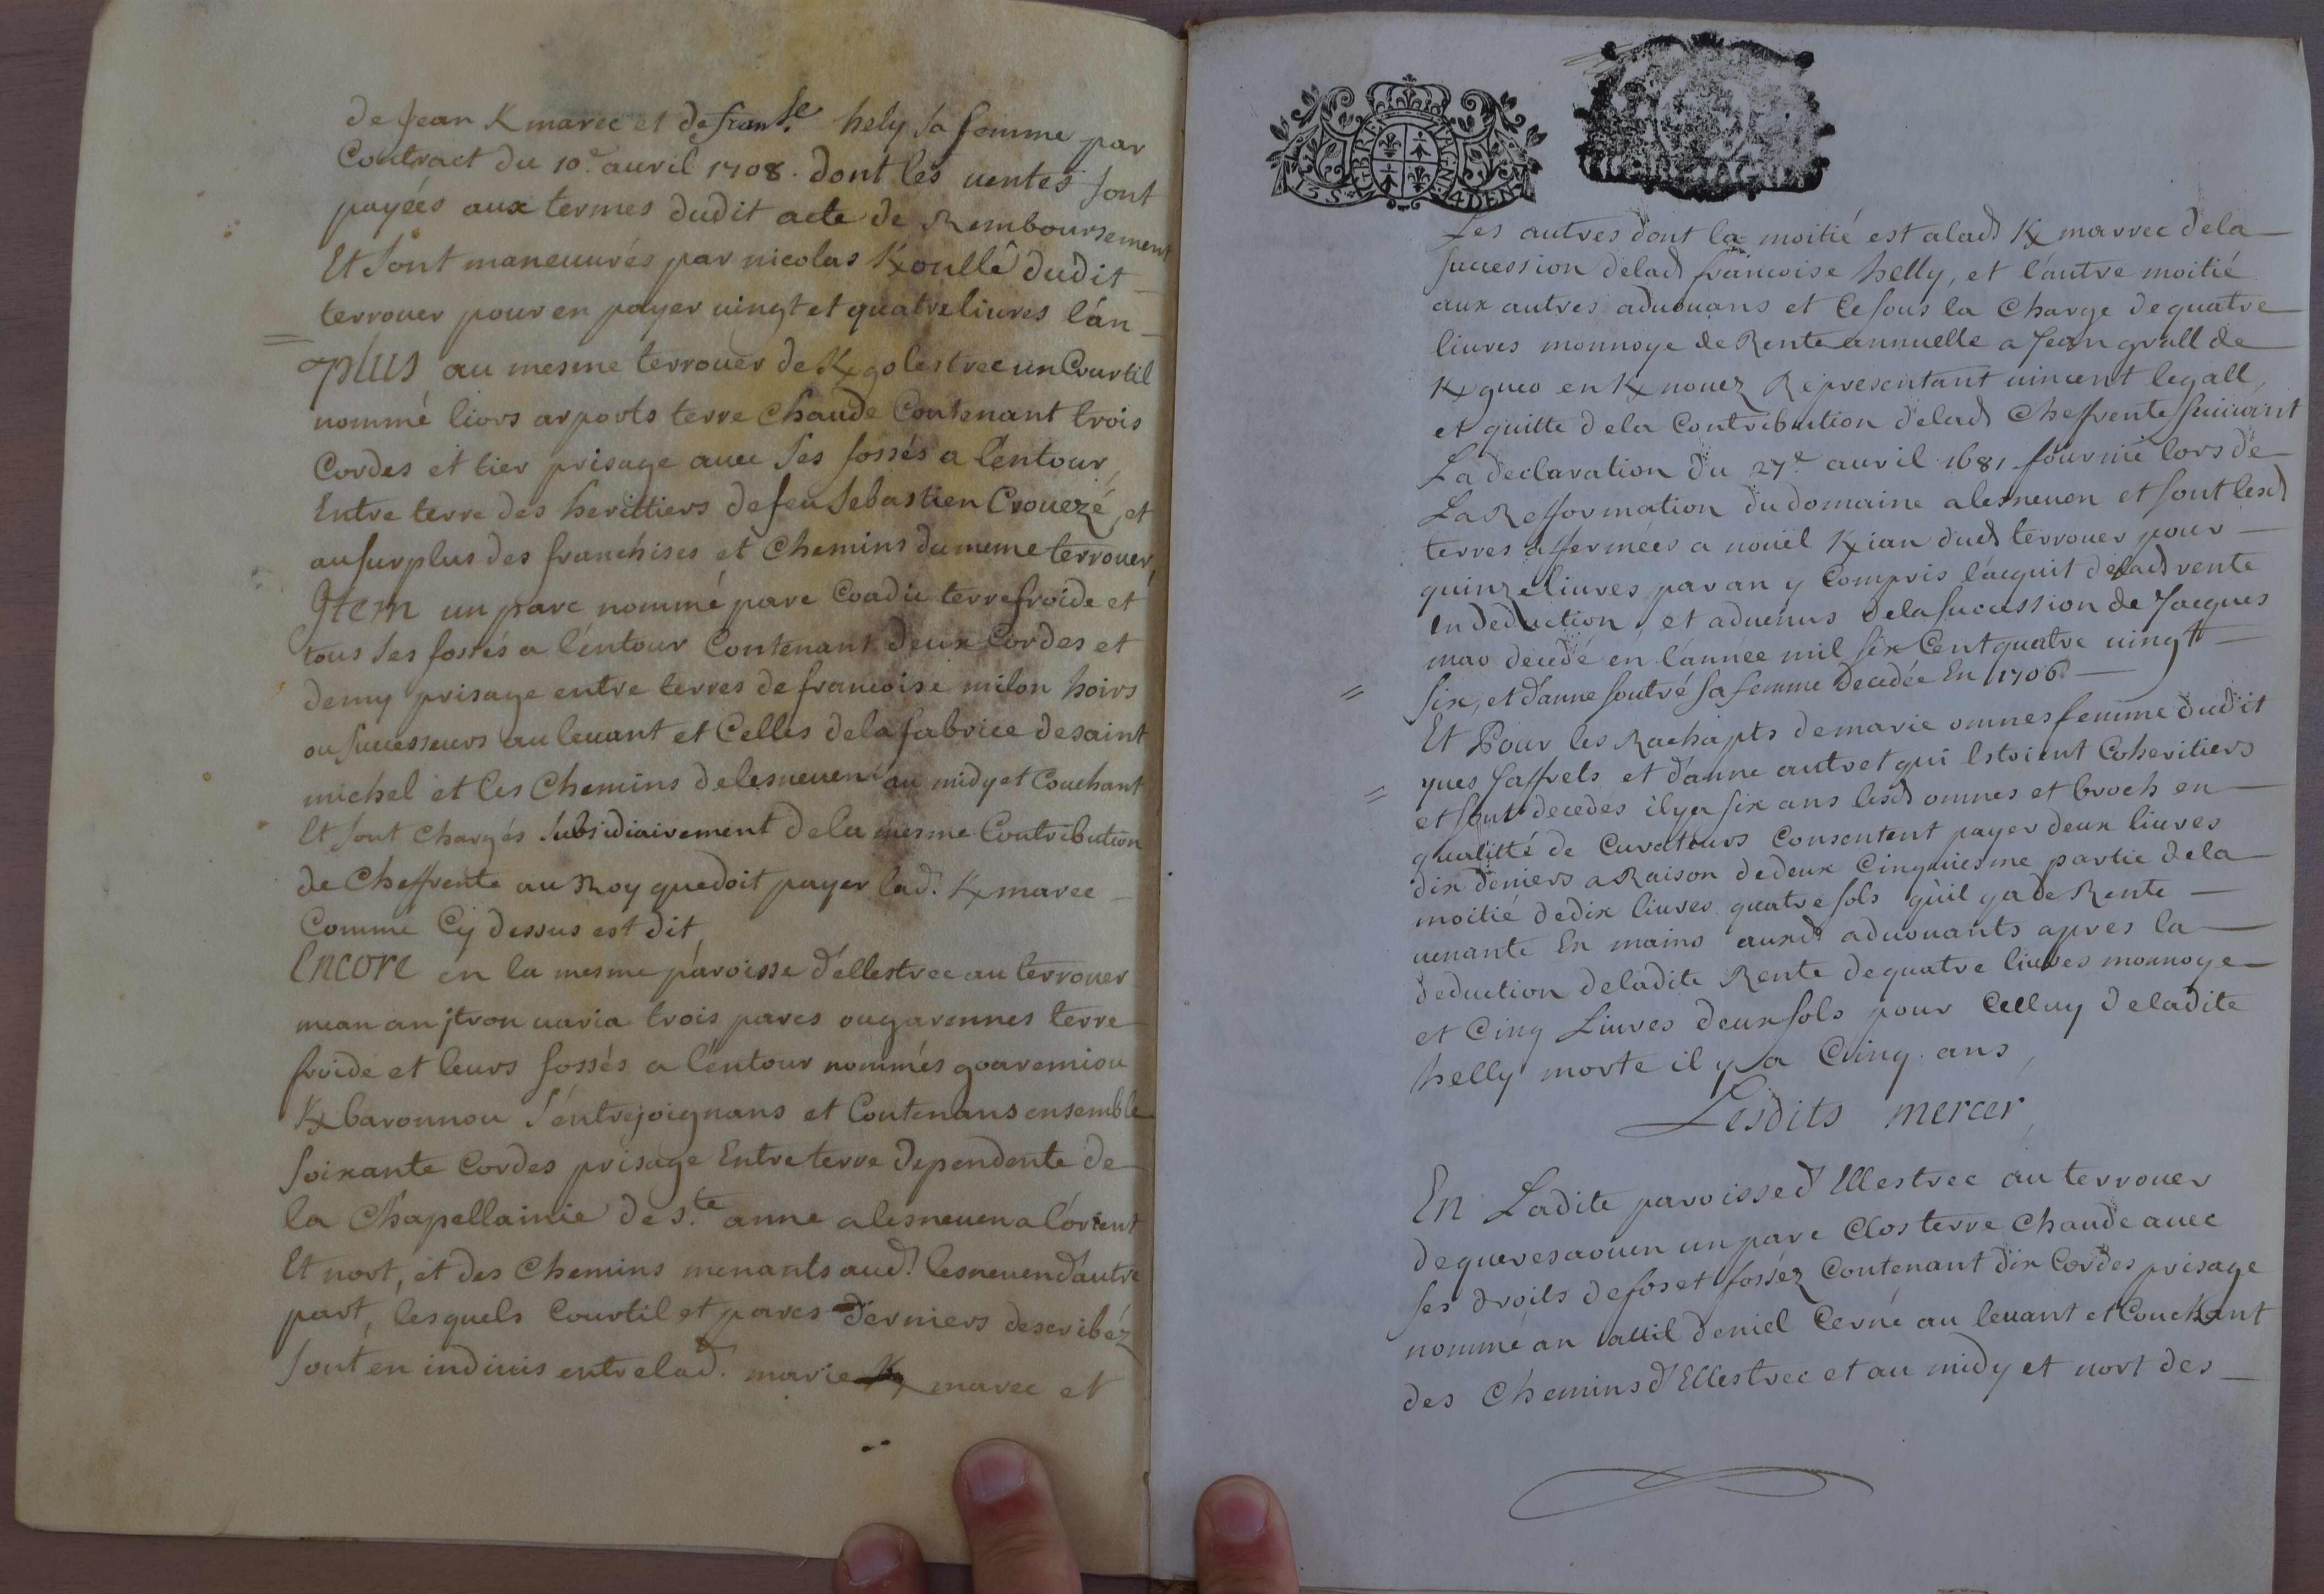 de Jean Kmarec et de fran.se hely sa femme par
Contract du 10.e auril 1708. dont les uentes sont
payées aux termes dudit acte de Remboursement
Et sont maneuurés par nicolas K/oullê dudit
terrouer pour en payer uingt et quatre liures l'an
plus au mesme terrouer de K/golestrec un Courtil
nommé liors arports terre chaude Contenant trois
Cordes et tier prisage auec ses fossés a l'entour,
Entre terre des herittiers de feu Sebastien Crouezé, et
au surplus des franchises et Chemins du meme terrouer,
Item un parc nommé parc Coadic terre froide et
tous ses fossés a l'entour Contenant deux Cordes et
demy prisage entre terres de francoise milon hoirs
ou successeurs au leuant et Celles de la fabrice de saint
michel et les Chemins de lesneuen au midy et Couchant
Et sont chargés subsidiairement de la mesme Contribution
de Cheffrente au Roy que doit payer lad. K/marec
Comme Cy dessus est dit
Encore en la mesme paroisse d'ellestrec au terrouer
mean an jtron uaria trois parcs ou garennes terre
froide et leurs fossés a l'entour nommés goaremiou
K/baronnou s'entrejoignans et Contenans ensemble
soixante Cordes prisage Entre terre dependente de
la Chapellainie de s.te anne a lesneuen a l'orient
Et nort, et des Chemins menants aud. lesneuen d'autre
part, lesquels Courtil et parcs derniers describéz
sont en indiuis entre lad. marie K/marec et
1354 BRETAGNE 4 DEN
Les autres dont la moitié est a lad K/marrec de la
succession de lad francoise helly, et l'autre moitié
aux autres aduouans et ce sous la Charge de quatre
liures monnoye de Rente annuelle a Jean grall de
K/gueo en K/nouez Representant uincent legall,
et quitte de la Contribution de lad Cheffrente suiuant
La declaration du 27.e auril 1681 fournie lors de
La Refformation du domaine a lesneuen et sont lesd
terres affermées a nouel K/ian dud terrouer pour
quinze liures par an y Compris l'acquit de lad rente
en deduction, et aduenus de la succession de Jacques
mao decedé en l'année mil six Cent quatre uingt
six, et d'anne soutré sa femme Decedée En 1706
Et Pour les Rachapts de marie omnes femme dudit
yues Jaffrels et d'anne autret qui Estoient Coheritiers
et sont decedés il y a six ans lesd omnes et broch en
qualitté de Curateurs Consentent payer deux liures
dix deniers a Raison de deux Cinquiesme partie de la
moitié de dix liures quatre sols qu'il y a de Rente
uenante En mains auxd aduouants apres la
deduction de ladite Rente de quatre liures monnoye
et Cinq Liures deux sols pour Celluy de ladite
helly morte il y a Cinq ans,
Lesdits mercer,
En Ladite paroisse d'Ellestrec au terrouer
de queresaouen un parc Clos terre Chaude auec
ses droits de fos et fossez Contenant dix Cordes prisage
nommé an deniel Cerné au leuant et Couchant
des Chemins d'Ellestrec et au midy et nort des